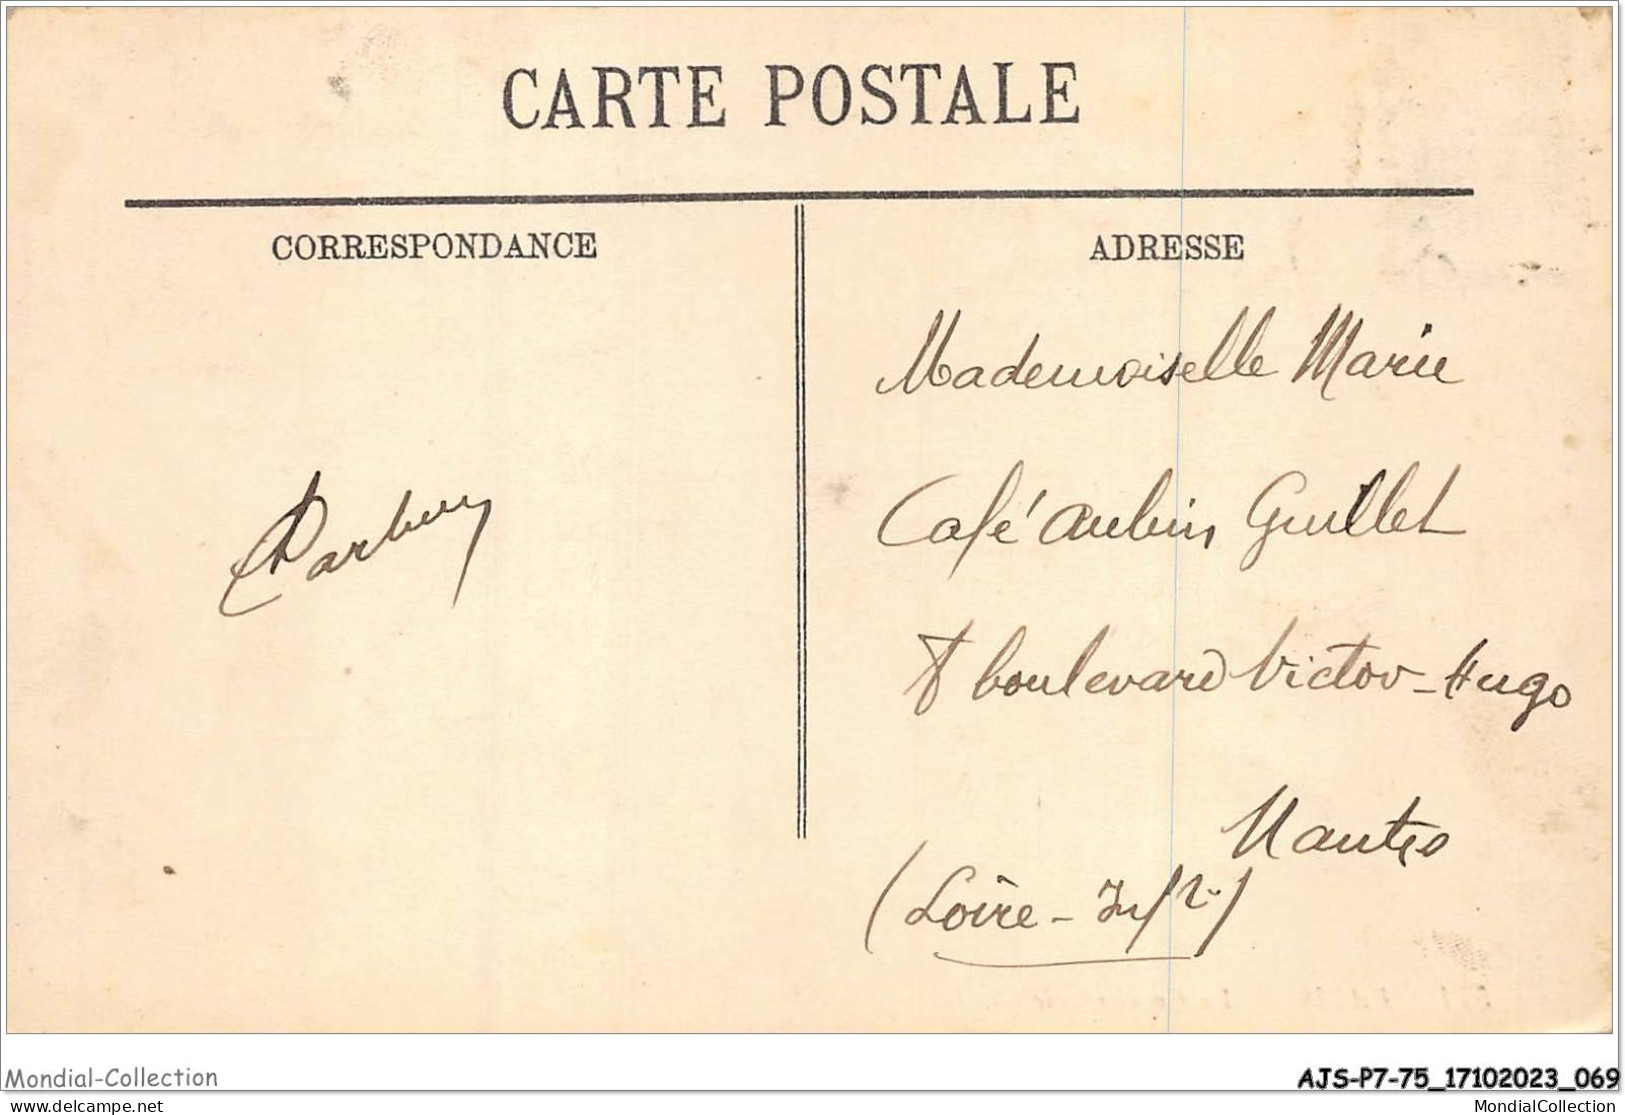 CARTE POSTALE
CORRESPONDANCE
ADRESSE
Mademoiselle Marie
Café Aubin Guillet
8 boulevard Victor-Hugo
Nantes
(Loire-Infre)
Mondial-Collection
delcampe.net
AJS-P7-75_17102023_069
MondialCollection